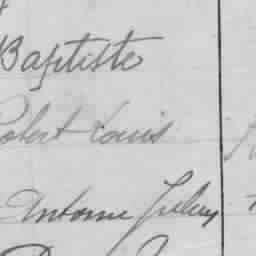 Baptiste
Robert Louis
Antoine Jules